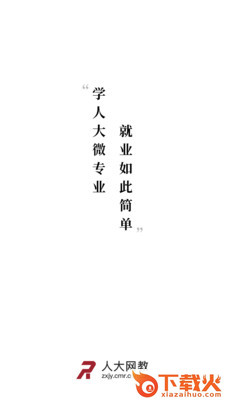 “学人大微专业
就业如此简单”
人大网教
zxjy.cmr.c
下载火
xiazaihuo.com